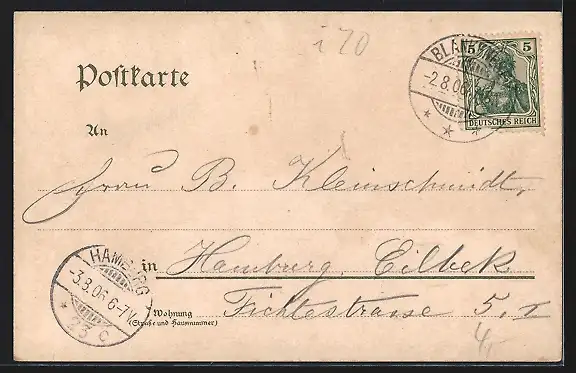 i 70
Postkarte
BLANKENESE
-2.8.06
5 5
DEUTSCHES REICH
An
Frau B. Kleinschmidt,
in Hamburg, Eilbek
HAMBURG
-3.8.06 6-7V.
* 23 c
Wohnung Fichtestrasse 5, I
(Straße und Hausnummer)
4,-